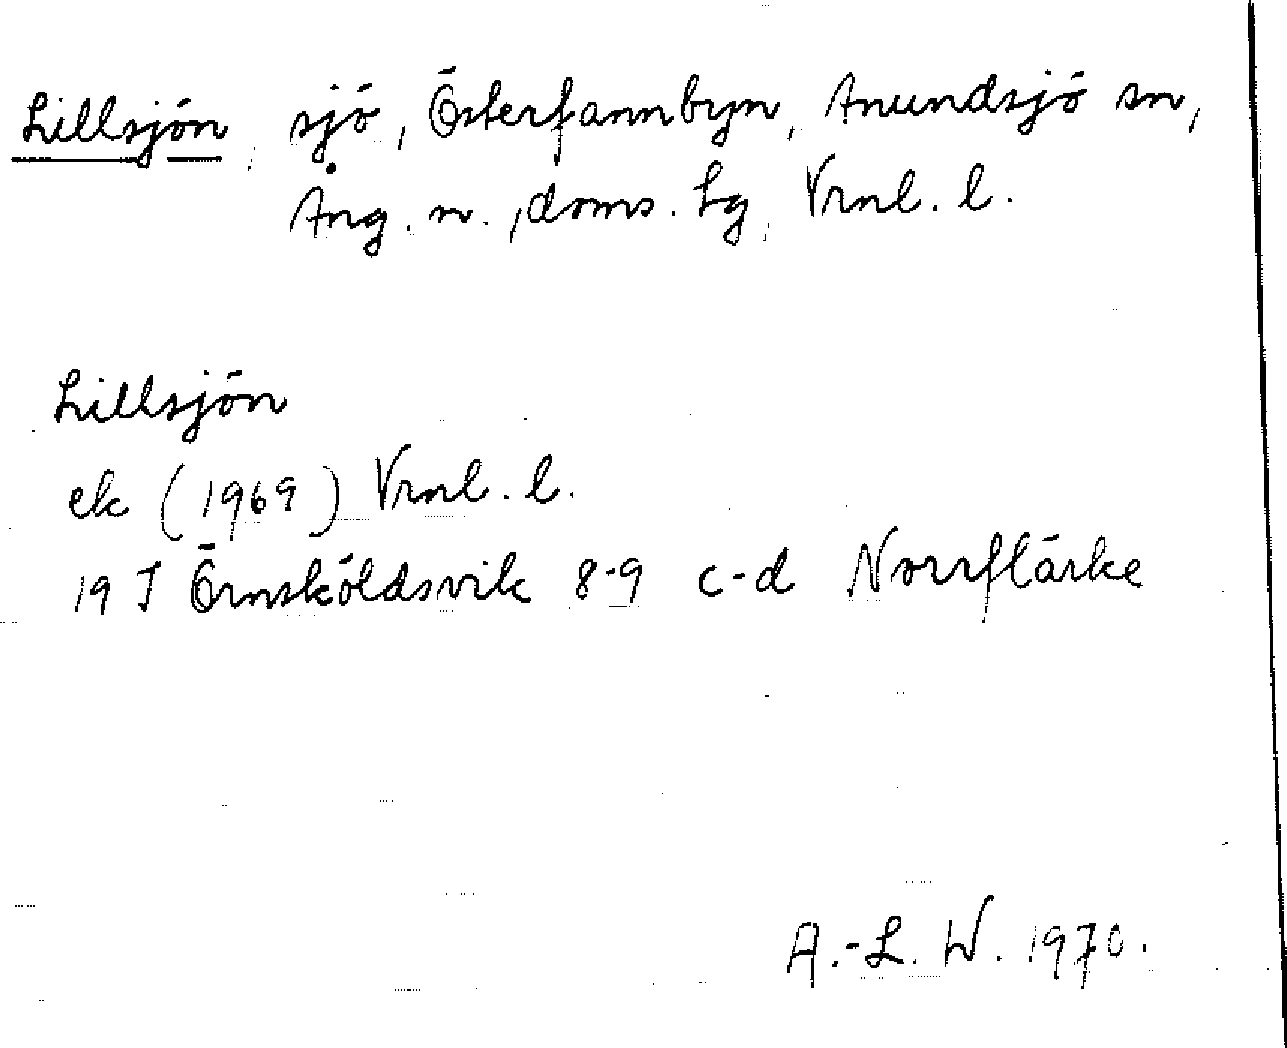 Lillsjön, sjö, Österfannbyn, Anundsjö sn,
Ång. n., doms. hg, Vrnl. l.
Lillsjön
ek (1969) Vrnl. l.
19 J Örnsköldsvik 8-9 c-d Norrflärke
A.-L. W. 1970.